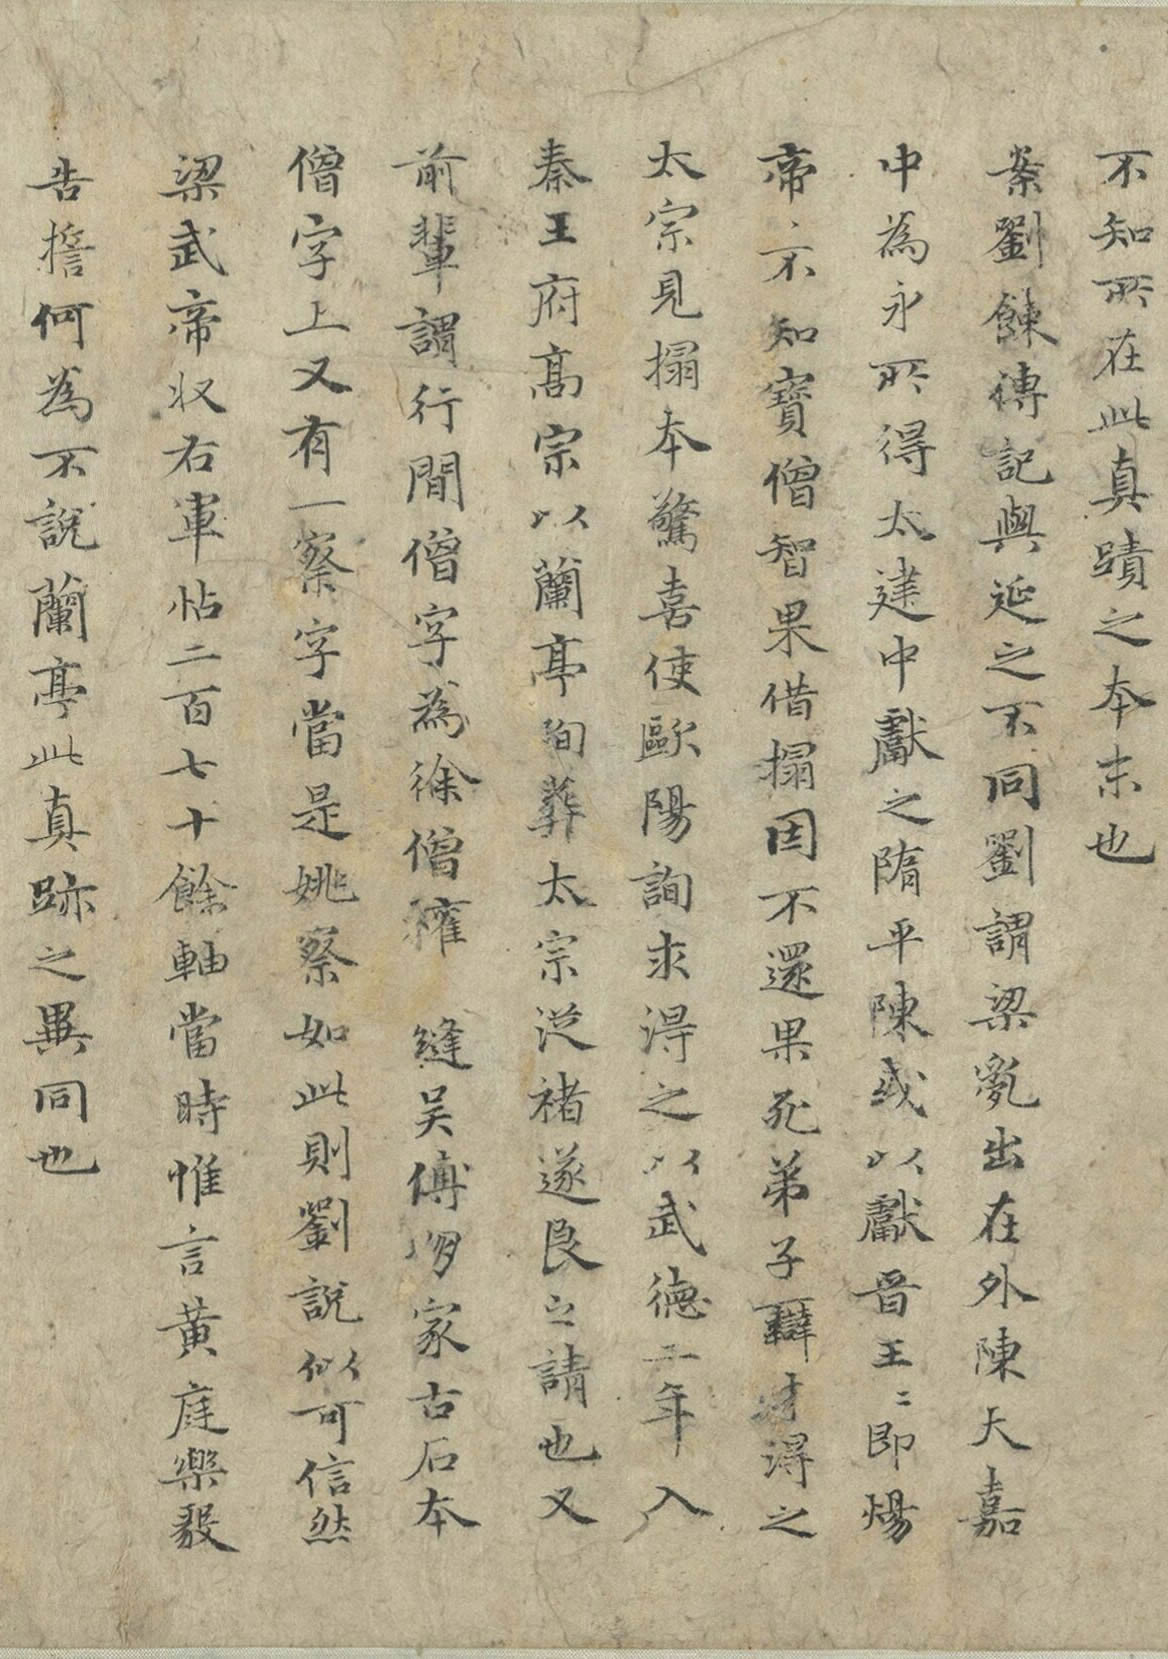 不知所在此真蹟之本末也
案劉餗傳記與延之不同劉謂梁亂出在外陳天嘉
中為永所得太建中獻之隋平陳或以獻晉王二即煬
帝帝不知寶僧智果借搨因不還果死弟子辯才得之
太宗見搨本驚喜使歐陽詢求得之以武德二年入
秦王府高宗以蘭亭殉葬太宗從褚遂良之請也又
前輩謂行間僧字為徐僧權縫吳傅朋家古石本
僧字上又有一察字當是姚察如此則劉說似可信然
梁武帝收右軍帖二百七十餘軸當時惟言黃庭樂毅
告誓何為不說蘭亭此真跡之異同也